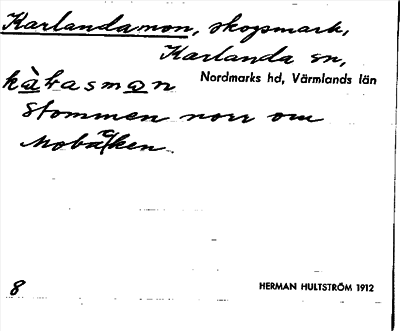 Karlandamon, skogsmark,
Karlanda sn,
Nordmarks hd, Värmlands län
kàɫasmɷn
Stommen norr om
Mobäcken
8
HERMAN HULTSTRÖM 1912